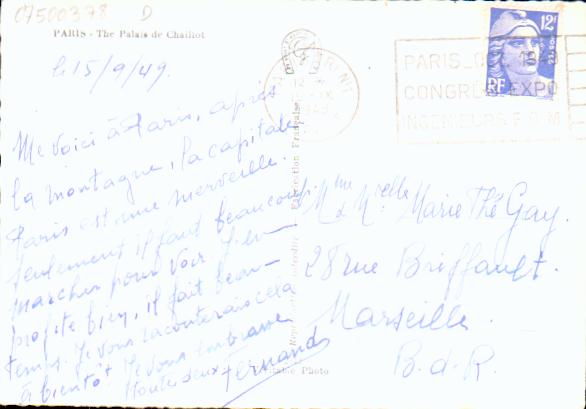 07500378 D
PARIS - The Palais de Chaillot
le 15/9/49.
Me voici à Paris, après
la montagne, la capitale
Paris est une merveille.
Seulement il faut beaucoup
marcher pour voir. J'en
profite bien, il fait beau
temps. Je vous raconterais cela
à bientôt. Je vous embrasse
toute deux. Fernand
Reproduction Interdite - Fabrication Française
Véritable Photo
12F
RF
POSTES
PARIS
CONGRES EXPO
INGENIEURS F.O.M
Mme & Mlle Marie Thé Gay.
28 rue Briffault.
Marseille.
B.d.R.